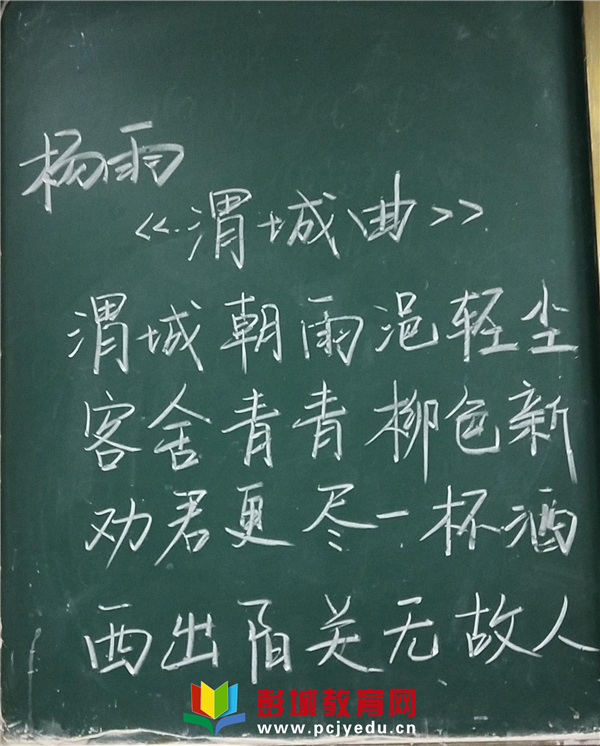 杨雨
《渭城曲》
渭城朝雨浥轻尘
客舍青青柳色新
劝君更尽一杯酒
西出阳关无故人
彭城教育网
www.pcjyedu.cn